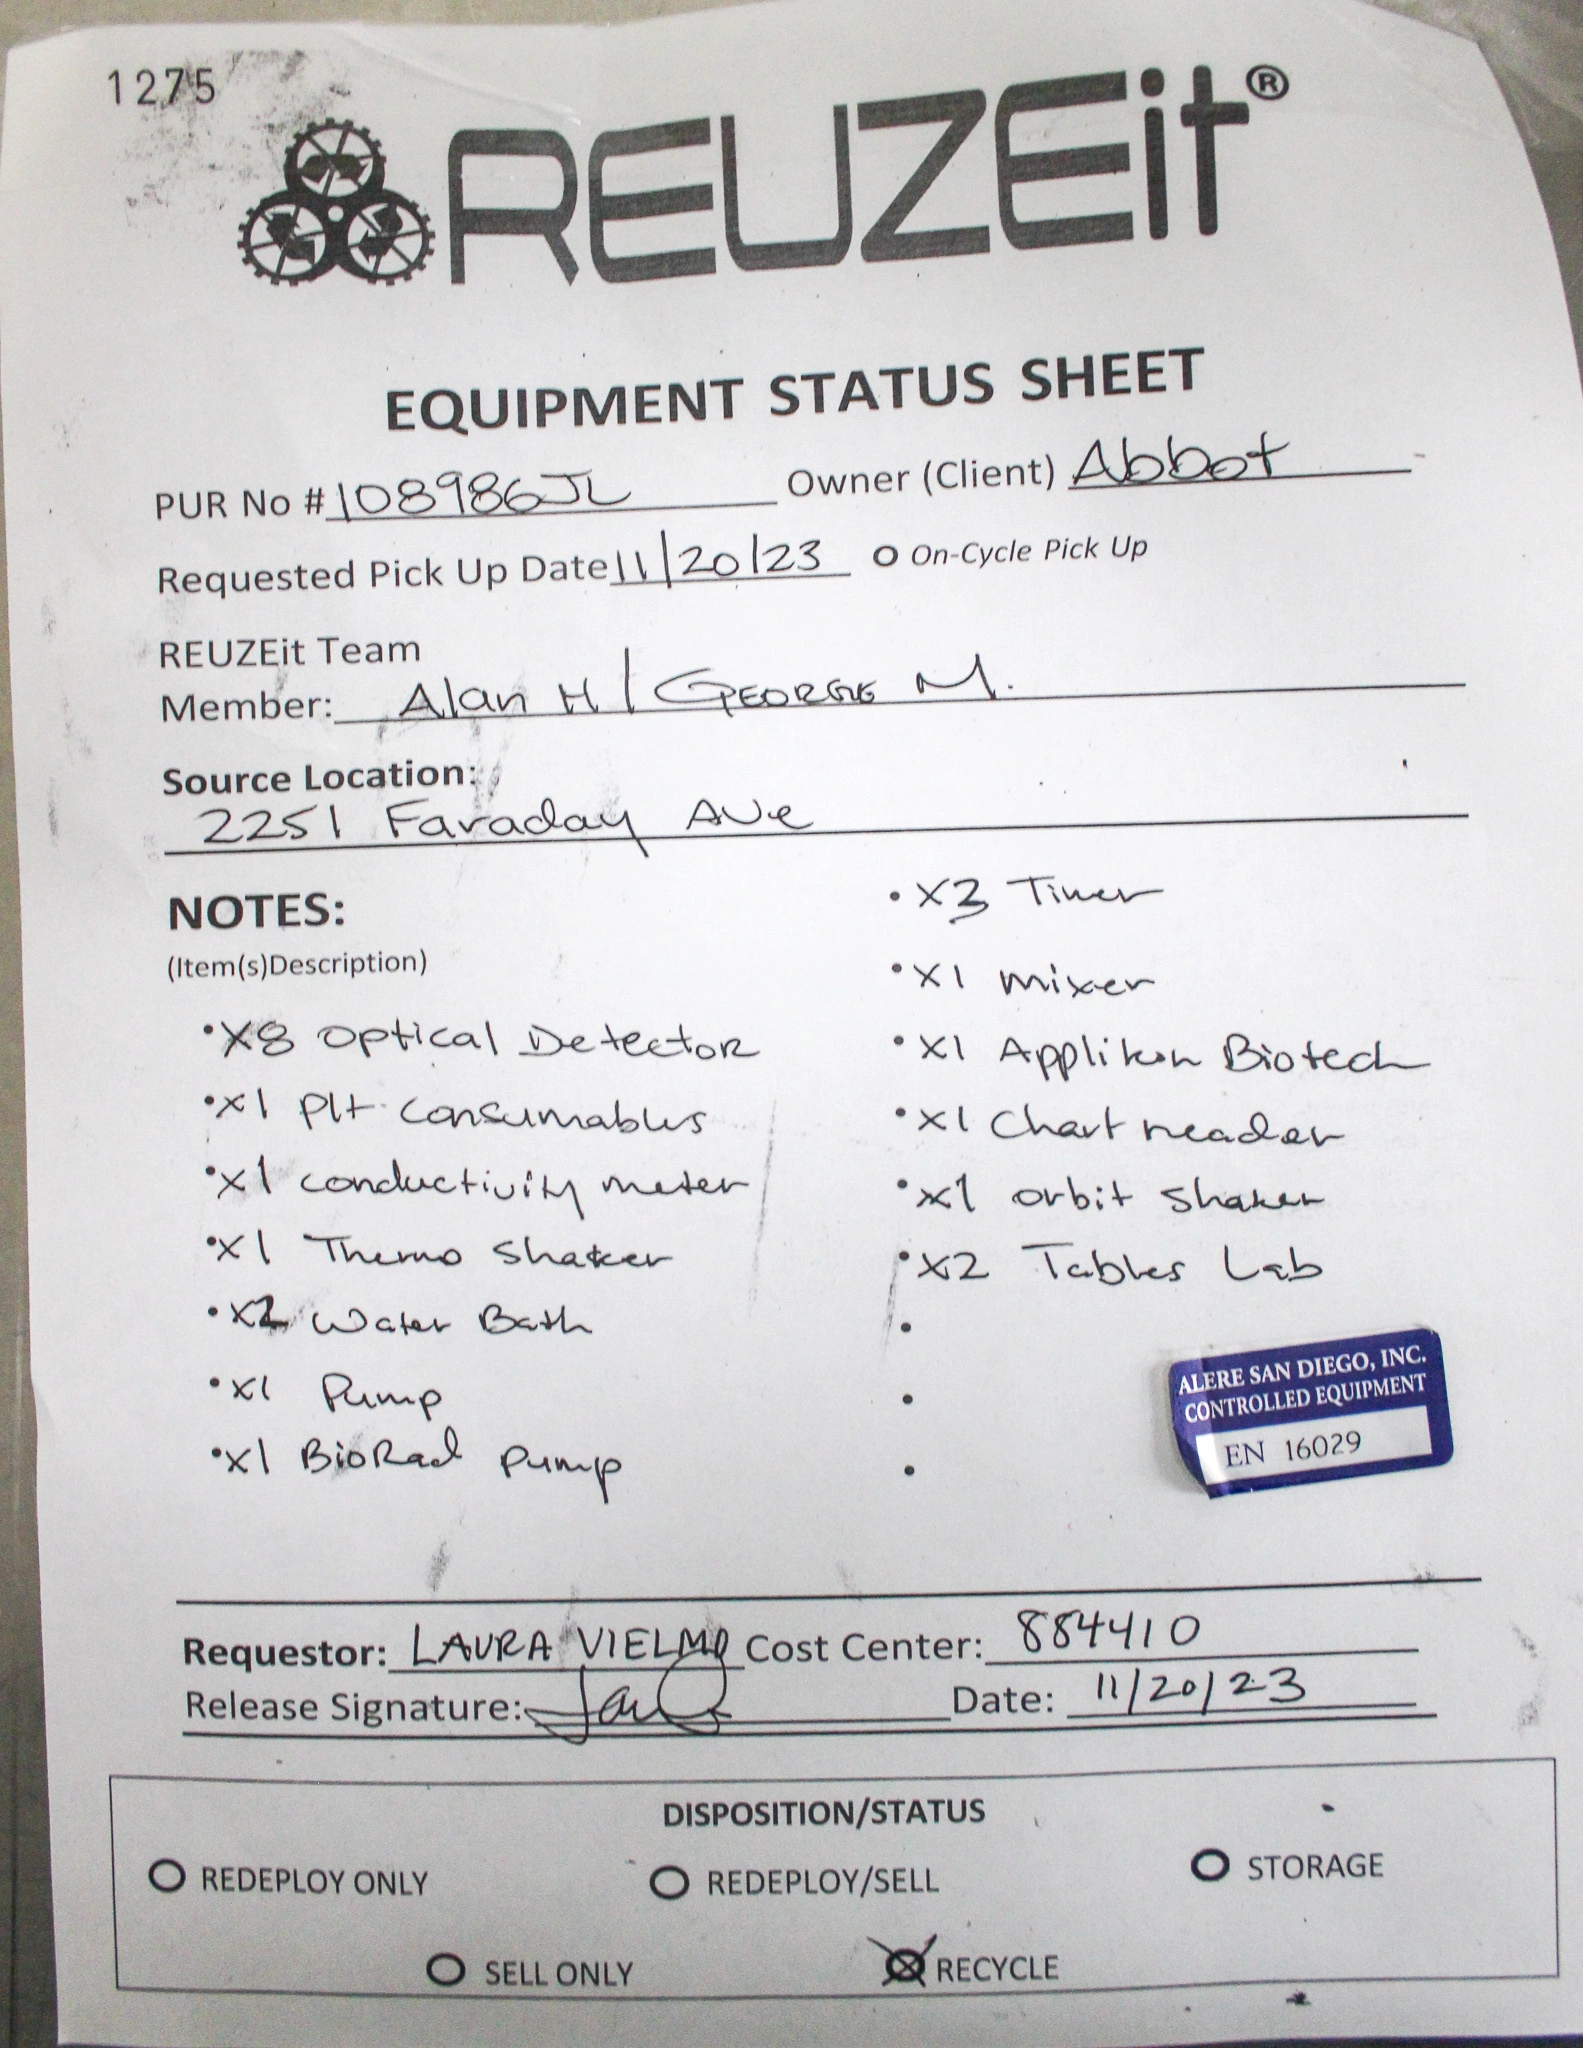 1275
REUZEit®
EQUIPMENT STATUS SHEET
PUR No # 108986JL Owner (Client) Abbot
Requested Pick Up Date 11/20/23 O On-Cycle Pick Up
REUZEit Team
Member: Alan H / GEORGE M.
Source Location:
2251 Faraday Ave
NOTES:
(Item(s)Description)
• X8 Optical Detector
• X1 Plt Consumables
• X1 conductivity meter
• X1 Thermo Shaker
• X2 Water Bath
• X1 Pump
• X1 BioRad Pump
• X3 Timer
• X1 mixer
• X1 Applikon Biotech
• X1 Chart reader
• X1 orbit shaker
• X2 Tables Lab
•
•
•
ALERE SAN DIEGO, INC.
CONTROLLED EQUIPMENT
EN 16029
Requestor: LAURA VIELMO Cost Center: 884410
Release Signature: Date: 11/20/23
DISPOSITION/STATUS
REDEPLOY ONLY REDEPLOY/SELL STORAGE
SELL ONLY RECYCLE